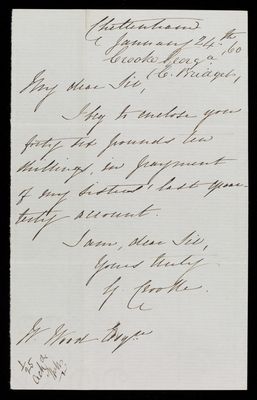 Cheltenham
January 24th, 60
Crooke Georg
(C. Bridget,
My dear Sir,
I beg to enclose you
forty six pounds ten
shillings, in payment
of my Sisters' last quar-
terly account.
I am, dear Sir,
Yours truly
G. Crooke.
W Wood Esqre
1/25
ackd